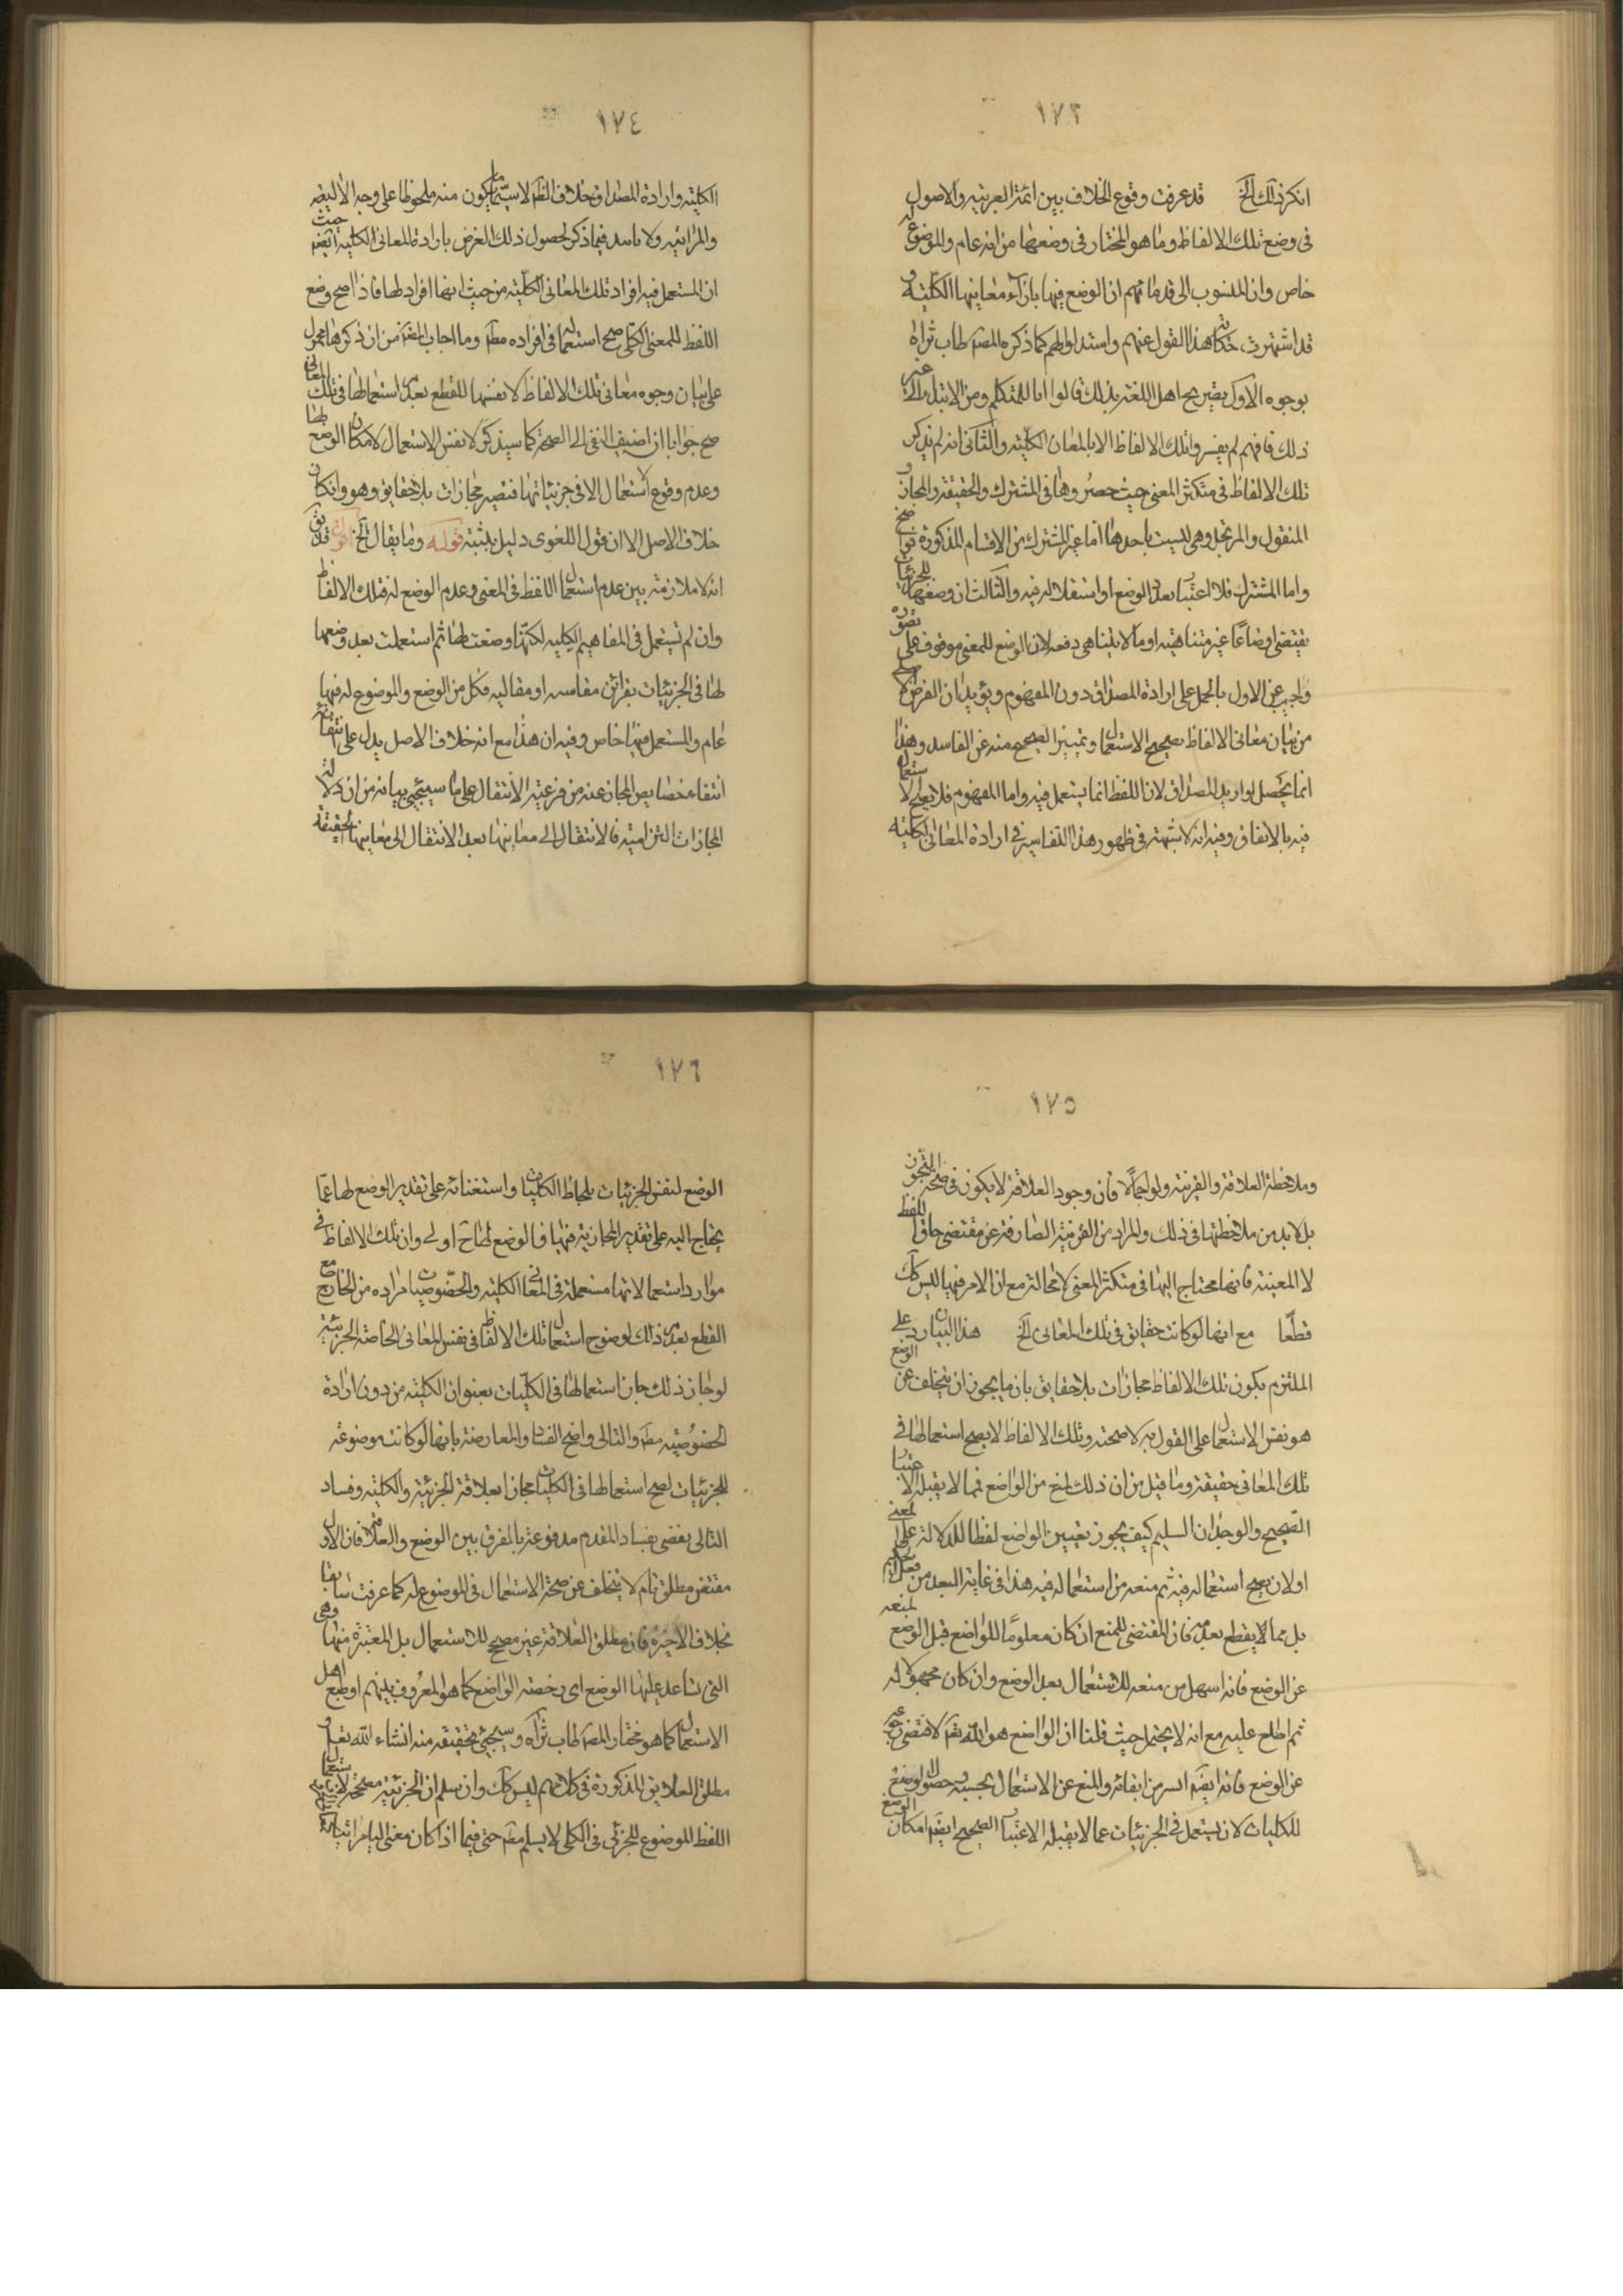 ١٧٣
انكر ذلك الخ قد عرفت وقوع الخلاف بين ائمة العربية والاصول
فى وضع تلك الالفاظ وما هو المختار فى وضعها من انه عام والموضوع له
خاص وان المنسوب الى قدمائهم ان الوضع فيها بازاء معانيها الكلية و
قد اشتهرت حكاية هذا القول عنهم واستدلوا لهم كما ذكره المصـ طاب ثراه
بوجوه الاول تصريح اهل اللغة بذلك قالوا انا للمتكلم ومن الابتداء الى غير
ذلك فانهم لم يفسروا تلك الالفاظ الا بالمعان الكلية والثانى انه لم يذكر
تلك الالفاظ فى متكثر المعنى حيث حصروها فى المشترك والحقيقة والمجاز و
المنقول والمرتجل وهى ليست باحدها اما غير المشترك من الاقسام المذكورة فواضح
واما المشترك فلاعتبار تعدد الوضع او استقلاله فيه والثالث ان وضعها للجزئيات
يقتضى اوضاعا غير متناهية او ما لا يتناهى دفعة لان الوضع للمعنى موقوف على تصوره
واجيب عن الاول بالحمل على ارادة المصداق دون المفهوم ويؤيد ان الغرض الاصلى
من بيان معانى الالفاظ تصحيح الاستعمال وتمييز الصحيح منه عن الفاسد وهذا
انما يحصل لو اريد المصداق لان اللفظ انما يستعمل فيه واما المفهوم فلا يصح الاستعمال
فيه بالاتفاق وفيه انه لا شبهة فى ظهور هذا التفاسير فى ارادة المعانى الكلية
١٧٤
الكلية وارادة المصداق خلاف الظـ لا سيما ما يكون منه ملحوظا على وجه الالية
والمراتية ولا تاييد فيما ذكر لحصول ذلك الغرض بارادة المعانى الكلية ايضـ حيث
ان المستعمل فيه افراد تلك المعانى الكلية من حيث انها افراد لها فاذا صح وضع
اللفظ للمعنى الكلى صح استعماله فى افراده مطـ وما اجاب المصـ من ان ذكرها محمول
على بيان وجوه معانى تلك الالفاظ لا نفسها للقطع بعدم استعمالها فى تلك المعانى
صح جوابا ان اضيف النفى الى الصحة كما سيذكر لا نفس الاستعمال لامكان الوضع لها
وعدم وقوع الاستعمال الا فى جزئياتها فتصير مجازات بلا حقايق وهو وان كان
خلاف الاصل الا ان قول اللغوى دليل يثبته قوله وما يقال الخ اقول قد يق
انه لا ملازمة بين عدم استعمال اللفظ فى المعنى وعدم الوضع له فتلك الالفاظ
وان لم تستعمل فى المفاهيم الكلية لكنها وضعت لها ثم استعملت بعد وضعها
لها فى الجزئيات بقرائن مقامية او مقالية فكل من الوضع والموضوع له فيها
عام والمستعمل فيها خاص وفيه ان هذا مع انه خلاف الاصل يدل على انتفائه
انتفاء خصايص المجاز عنه من فرعية الانتقال على ما سيجيئ بيانه من ان دلالة
المجازات التزامية فالانتقال الى معانيها بعد الانتقال الى معانيها الحقيقة
١٧٥
وملاحظة العلاقة والقرينة ولو اجمالا فان وجود العلاقة لا يكون فى صحة التجوز
بل لا بد من ملاحظتها فى ذلك والمراد من القرينة الصارفة عن مقتضى حاق اللفظ
لا المعينة فانها محتاج اليها فى متكثر المعنى لا محالة مع ان الامر فيها ليس كك
قطعا مع انها لو كانت حقايق فى تلك المعانى الخ هذا البيان رد على
الملتزم بكون تلك الالفاظ مجازات بلا حقايق بان ما يجوز ان يتخلف عن الوضع
هو نفس الاستعمال على القول به لا صحته وتلك الالفاظ لا يصح استعمالها فى
تلك المعانى حقيقة وما قيل من ان ذلك لمنع من الواضع فمما لا يقبله الاعتبار
الصحيح والوجدان السليم كيف يجوز تعيين الواضع لفظا للدلالة على المعنى
اولا يصح استعماله فيه ثم منعه من استعماله فيه هذا فى غاية البعد من فعل الحكيم
بل مما لا يقطع بعدمه فان المقتضى للمنع ان كان معلوما للواضع قبل الوضع لمنعه
عن الوضع فانه اسهل من منعه للاستعمال بعد الوضع وان كان مجهولا له
ثم اطلع عليه مع انه لا يحتمل حيث قلنا ان الواضع هو الله تعـ لاقتضى رجوعه
عن الوضع فانه ايضـ ايسر من ابقائه والمنع عن الاستعمال بحسبه وحصول الوضع
للكليات لان يستعمل فى الجزئيات عما لا يقبله الاعتبار الصحيح ايضـ امكان الوضع
١٧٦
الوضع لنفس الجزئيات بلحاظ الكليات واستغنائه على تقدير الوضع لها عما
يحتاج اليه على تقدير المجازية فيها فالوضع لها ح اولى وان تلك الالفاظ فى
موارد استعمالاتها مستعملة فى المعانى الكلية والخصوصيات مراده من الخارج مع
القطع بعدم ذلك لوضوح استعمال تلك الالفاظ فى نفس المعانى الخاصة الجزئية
لو جاز ذلك جاز استعمالها فى الكليات بعنوان الكلية من دون ارادة
الخصوصية مطـ والتالى واضح الفساد والمعارضة بانها لو كانت موضوعة
للجزئيات لصح استعمالها فى الكليات مجازا بعلاقة الجزئية والكلية وفساد
التالى يقضى بفساد المقدم مدفوعة بالفرق بين الوضع والعلاقة فان الاول
مقتض مطلق تام لا يتخلف عن صحة الاستعمال فى الموضوع له كما عرفت سابقا
بخلاف الاخيرة فان مطلق العلاقة غير مصحح للاستعمال بل المعتبرة منها وهى
التى تساعد عليها الوضع اى رخصة الواضع كما هو المعروف بينهم او طبع اهل
الاستعمال كما هو مختار المصـ طاب ثراه وسيجيئ تحقيقه منه انشاء الله تعـ و
مطلق العلايق المذكورة فى كلامهم ليس كك وان سلم ان الجزئية مصححة لاستعمال
اللفظ الموضوع للجزئى فى الكلى لا يسلم مطـ حتى فيما اذا كان معنى